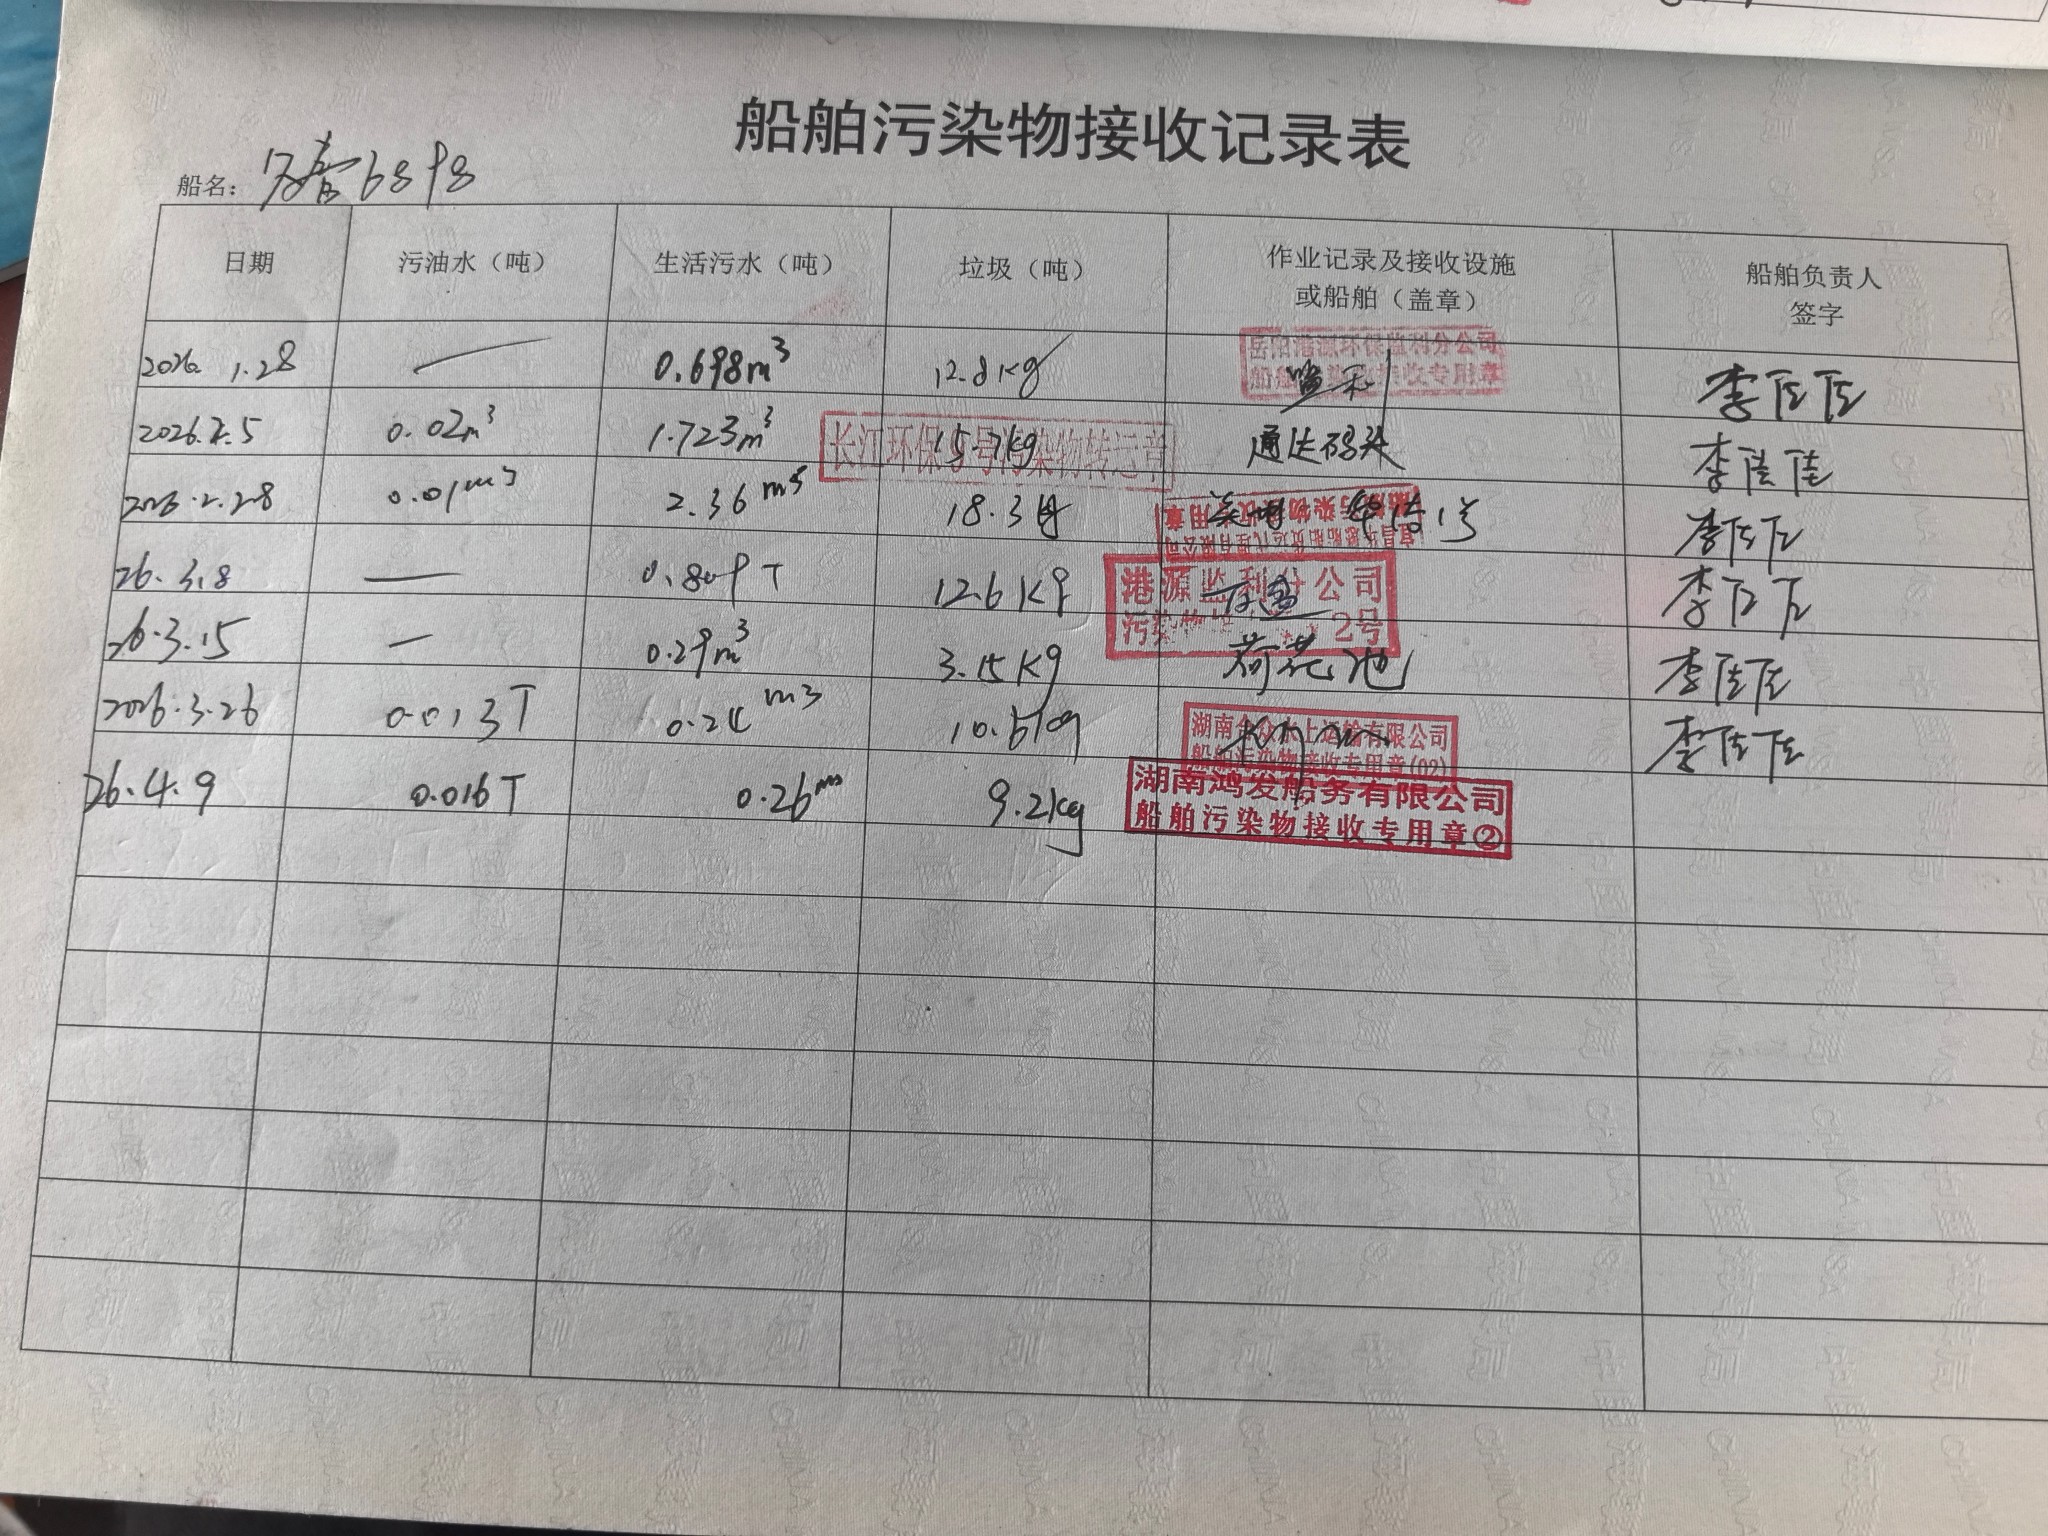 船舶污染物接收记录表
船名：
日期 污油水（吨） 生活污水（吨） 垃圾（吨） 作业记录及接收设施或船舶（盖章） 船舶负责人签字
2026. 1.28 — 0.698m³ 12.8kg 岳阳港源环保监利分公司 监利 李佳佳
2026.2.5 0.02m³ 1.723m³ 15.7kg 长江环保 号污染物转运章 通达码头 李佳佳
2026.2.28 0.01m³ 2.36m³ 18.3kg 1号 李佳佳
26.3.8 — 0.809T 12.6Kg 港源监利分公司 2号 李佳佳
26.3.15 — 0.29m³ 3.15Kg 荷花池 李佳佳
2026.3.26 0.013T m3 湖南 众水上运输有限公司 船舶污染物接收专用章(02) 李佳佳
26.4.9 0.016T 0.26m³ 9.2kg 湖南鸿发船务有限公司 船舶污染物接收专用章②